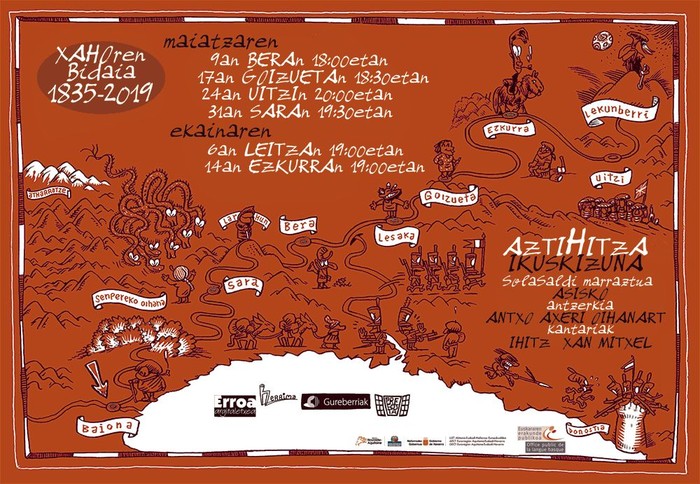 XAHOren
Bidaia
1835-2019
maiatzaren
9an BERAn 18:00etan
17an GOIZUETAn 18:30etan
24an UITZIn 20:00etan
31an SARAn 19:30etan
ekainaren
6an LEITZAn 19:00etan
14an EZKURRAn 19:00etan
Ezkurra
Lekunberri
Uitzi
Atharratze
Goizueta
Larhun
Bera
Lesaka
Sara
Senpereko oihana
AZTIHITZA
IKUSKIZUNA
Solasaldi marraztua
ASISKO
antzerkia
ANTXO AXERI OIHANART
kantariak
IHITZ XAN MITXEL
Baiona
Donostia
Erroa
argitaletxea
Gureberriak
Euskararen
erakunde
publikoa
Office public de
la langue basque